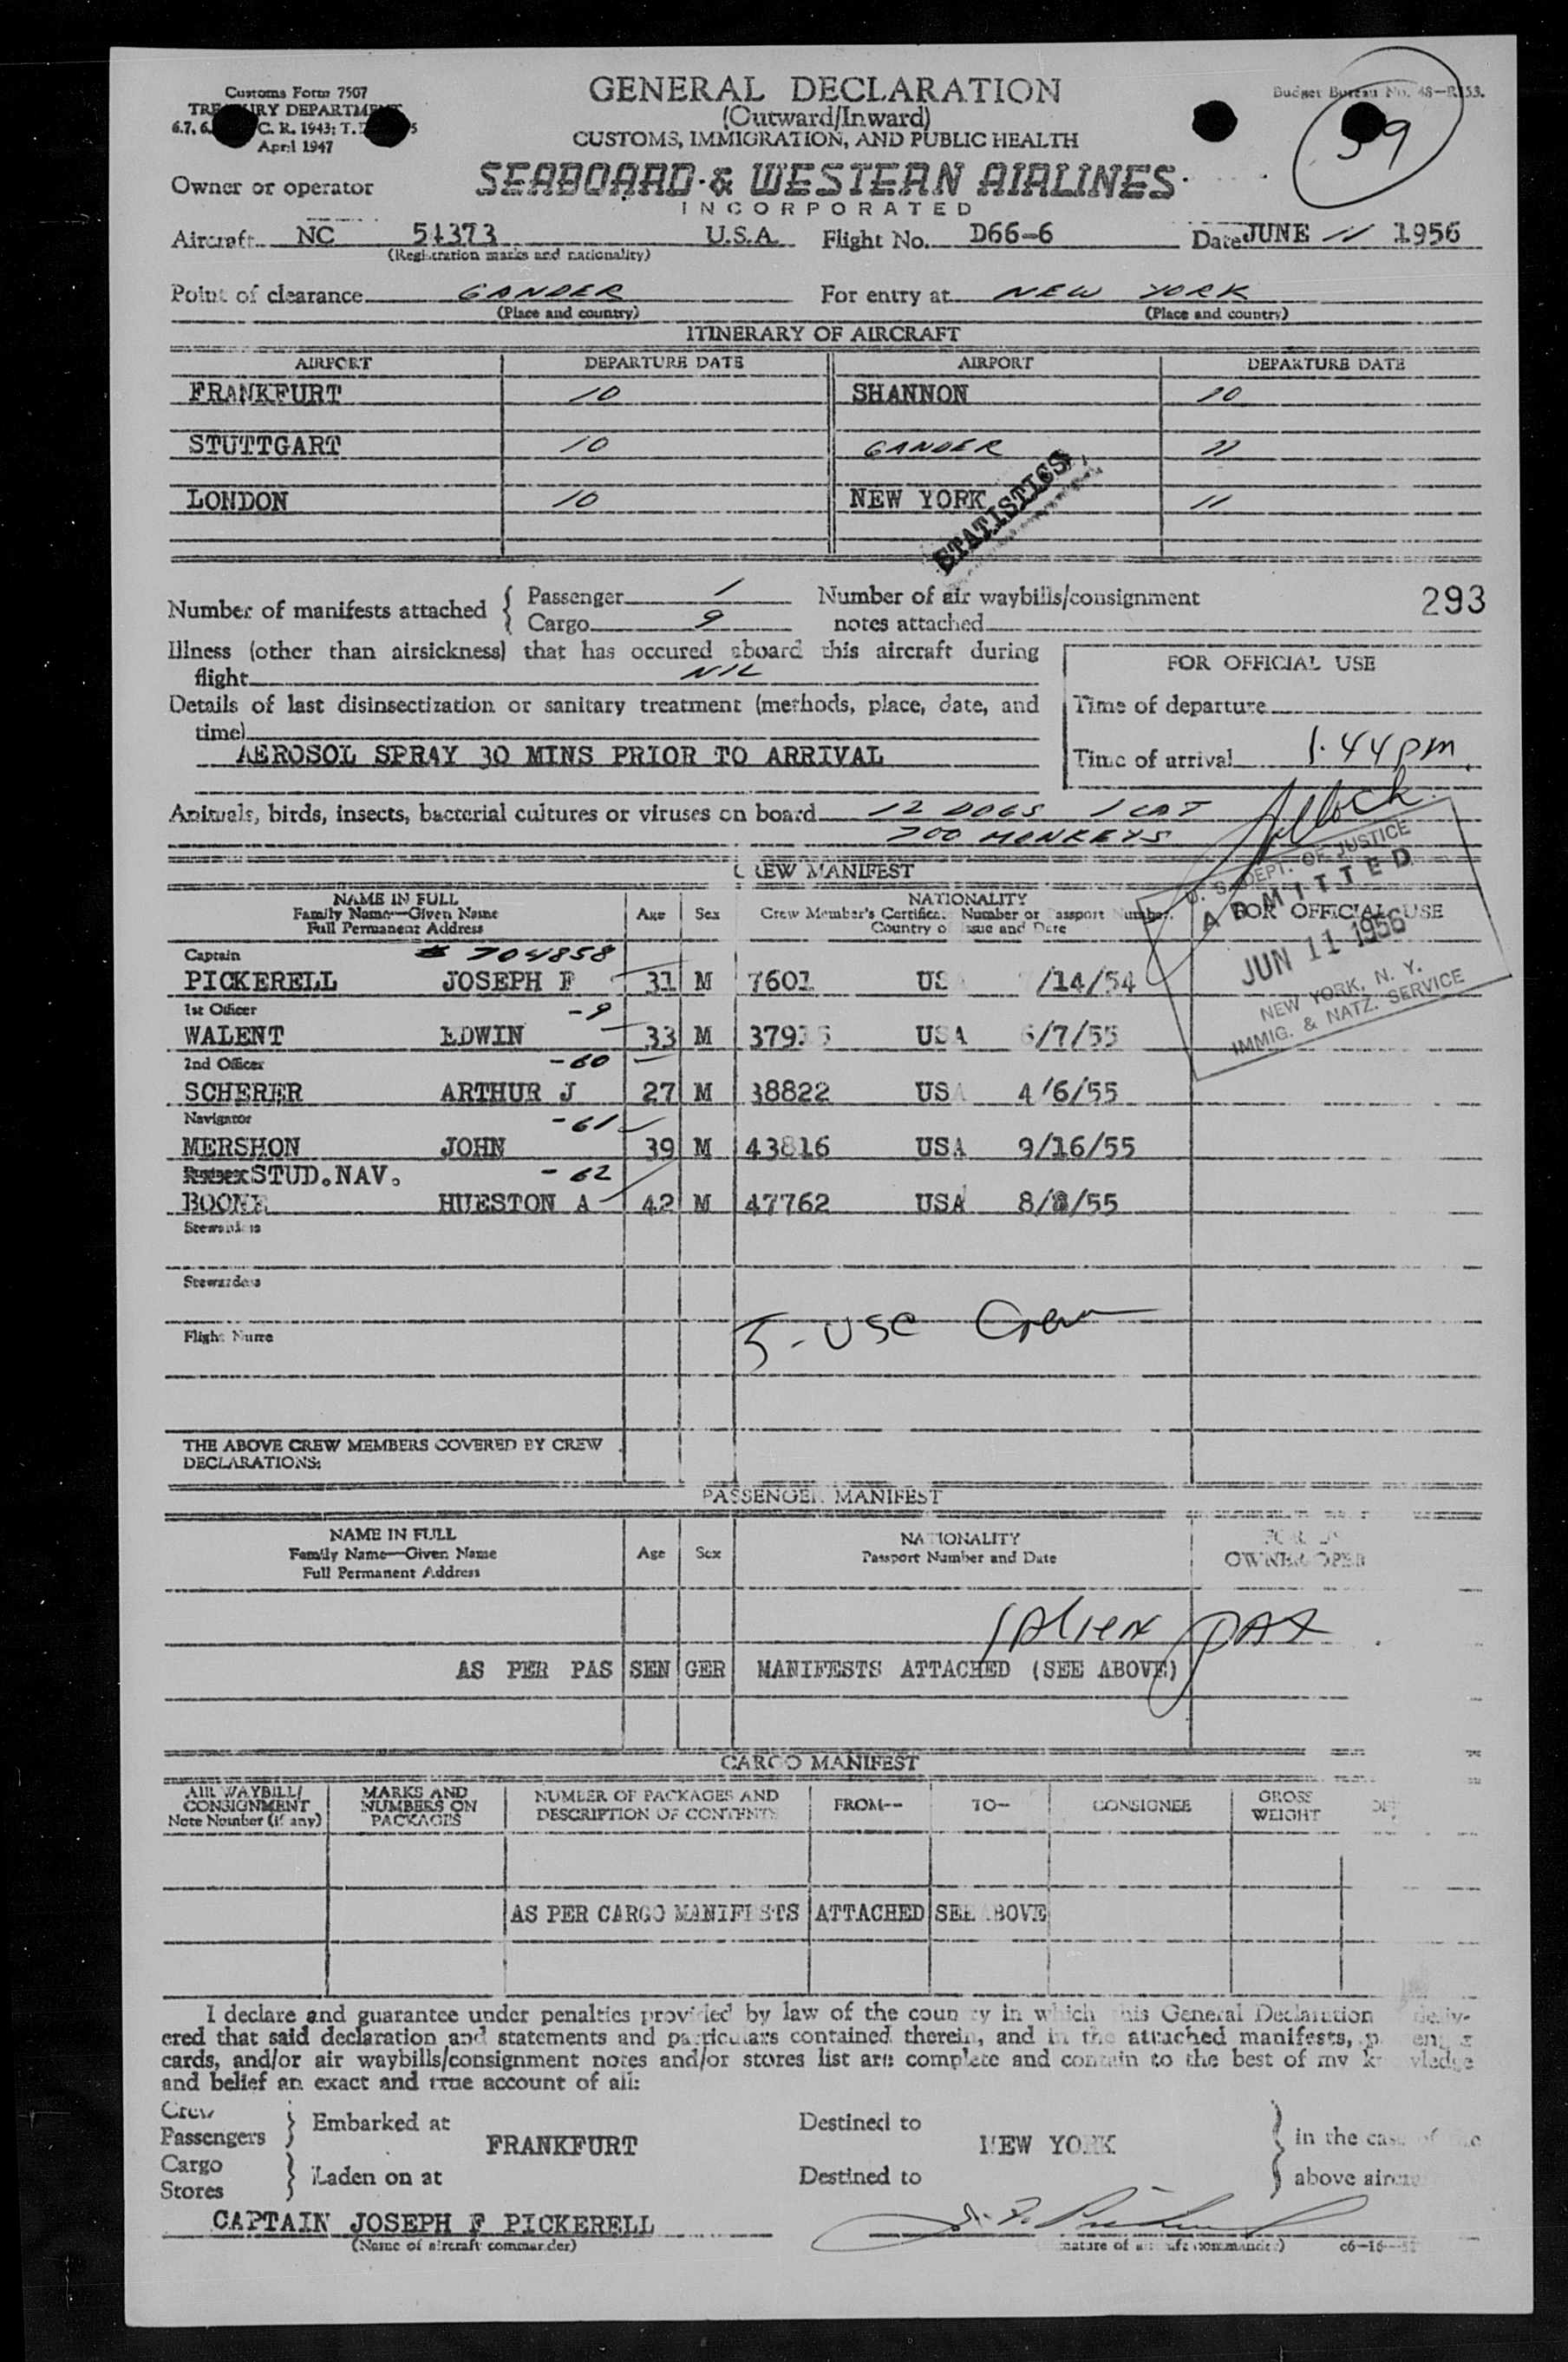 Customs Form 7507
TREASURY DEPARTMENT
April 1947
Budget Bureau No. 48-R153.
59
GENERAL DECLARATION
(Outward/Inward)
CUSTOMS, IMMIGRATION, AND PUBLIC HEALTH
Owner or operator SEABOARD & WESTERN AIRLINES
INCORPORATED
Aircraft NC 51373 U.S.A. Flight No. D66-6 Date JUNE 11 1956
(Registration marks and nationality)
Point of clearance GANDER For entry at NEW YORK
(Place and country) (Place and country)
ITINERARY OF AIRCRAFT
AIRPORT DEPARTURE DATE AIRPORT DEPARTURE DATE
FRANKFURT 10 SHANNON 10
STUTTGART 10 GANDER 11
LONDON 10 NEW YORK 11
STATISTICS
Number of manifests attached { Passenger 1 Number of air waybills/consignment 293
Cargo 9 notes attached
Illness (other than airsickness) that has occured aboard this aircraft during
flight NIL
FOR OFFICIAL USE
Details of last disinsectization or sanitary treatment (methods, place, date, and
time)
Time of departure
AEROSOL SPRAY 30 MINS PRIOR TO ARRIVAL
Time of arrival 1.44 pm.
Animals, birds, insects, bacterial cultures or viruses on board 12 DOGS 1 CAT
700 MONKEYS
CREW MANIFEST
NAME IN FULL
Family Name—Given Name
Full Permanent Address
Age Sex
NATIONALITY
Crew Member's Certificate Number or Passport Number.
Country of Issue and Date
FOR OFFICIAL USE
U. S. DEPT. OF JUSTICE
ADMITTED
JUN 11 1956
NEW YORK, N. Y.
IMMIG. & NATZ. SERVICE
Captain # 704858
PICKERELL JOSEPH F 31 M 7601 US /14/54
1st Officer -9
WALENT EDWIN 33 M USA 6/7/55
2nd Officer -60
SCHERER ARTHUR J 27 M 38822 USA 4/6/55
Navigator -61
MERSHON JOHN 39 M 43816 USA 9/16/55
STUD.NAV. -62
BOONE HUESTON A 42 M 47762 USA 8/8/55
Stewardess
Stewardess
Flight Nurse
5 - USC Crew
THE ABOVE CREW MEMBERS COVERED BY CREW
DECLARATIONS:
PASSENGER MANIFEST
NAME IN FULL
Family Name—Given Name
Full Permanent Address
Age Sex
NATIONALITY
Passport Number and Date
OWNER OPER
1 Alien pax
AS PER PASSENGER MANIFESTS ATTACHED (SEE ABOVE)
CARGO MANIFEST
AIR WAYBILL/
CONSIGNMENT
Note Number (if any)
MARKS AND
NUMBERS ON
PACKAGES
NUMBER OF PACKAGES AND
DESCRIPTION OF CONTENTS
FROM— TO— CONSIGNEE
GROSS
WEIGHT
AS PER CARGO MANIFESTS ATTACHED SEE ABOVE
I declare and guarantee under penalties provided by law of the country in which this General Declaration deliv-
ered that said declaration and statements and particulars contained therein, and in the attached manifests, passenger
cards, and/or air waybills/consignment notes and/or stores list are complete and contain to the best of my knowledge
and belief an exact and true account of all:
Crew
Passengers } Embarked at FRANKFURT Destined to NEW YORK } in the case of the
Cargo
Stores } Laden on at Destined to above aircraft
CAPTAIN JOSEPH F PICKERELL
(Name of aircraft commander) (Signature of aircraft commander)